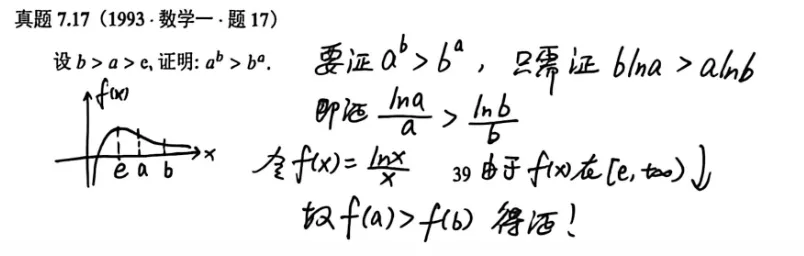 真题 7.17（1993·数学一·题 17）
设 b > a > e, 证明: aᵇ > bᵃ.
要证 aᵇ > bᵃ ，只需证 blna > alnb
即证 lna/a > lnb/b
f(x)
e a b x
令 f(x) = lnx/x 39 由于 f(x) 在 [e, +∞) ↓
故 f(a) > f(b) 得证！